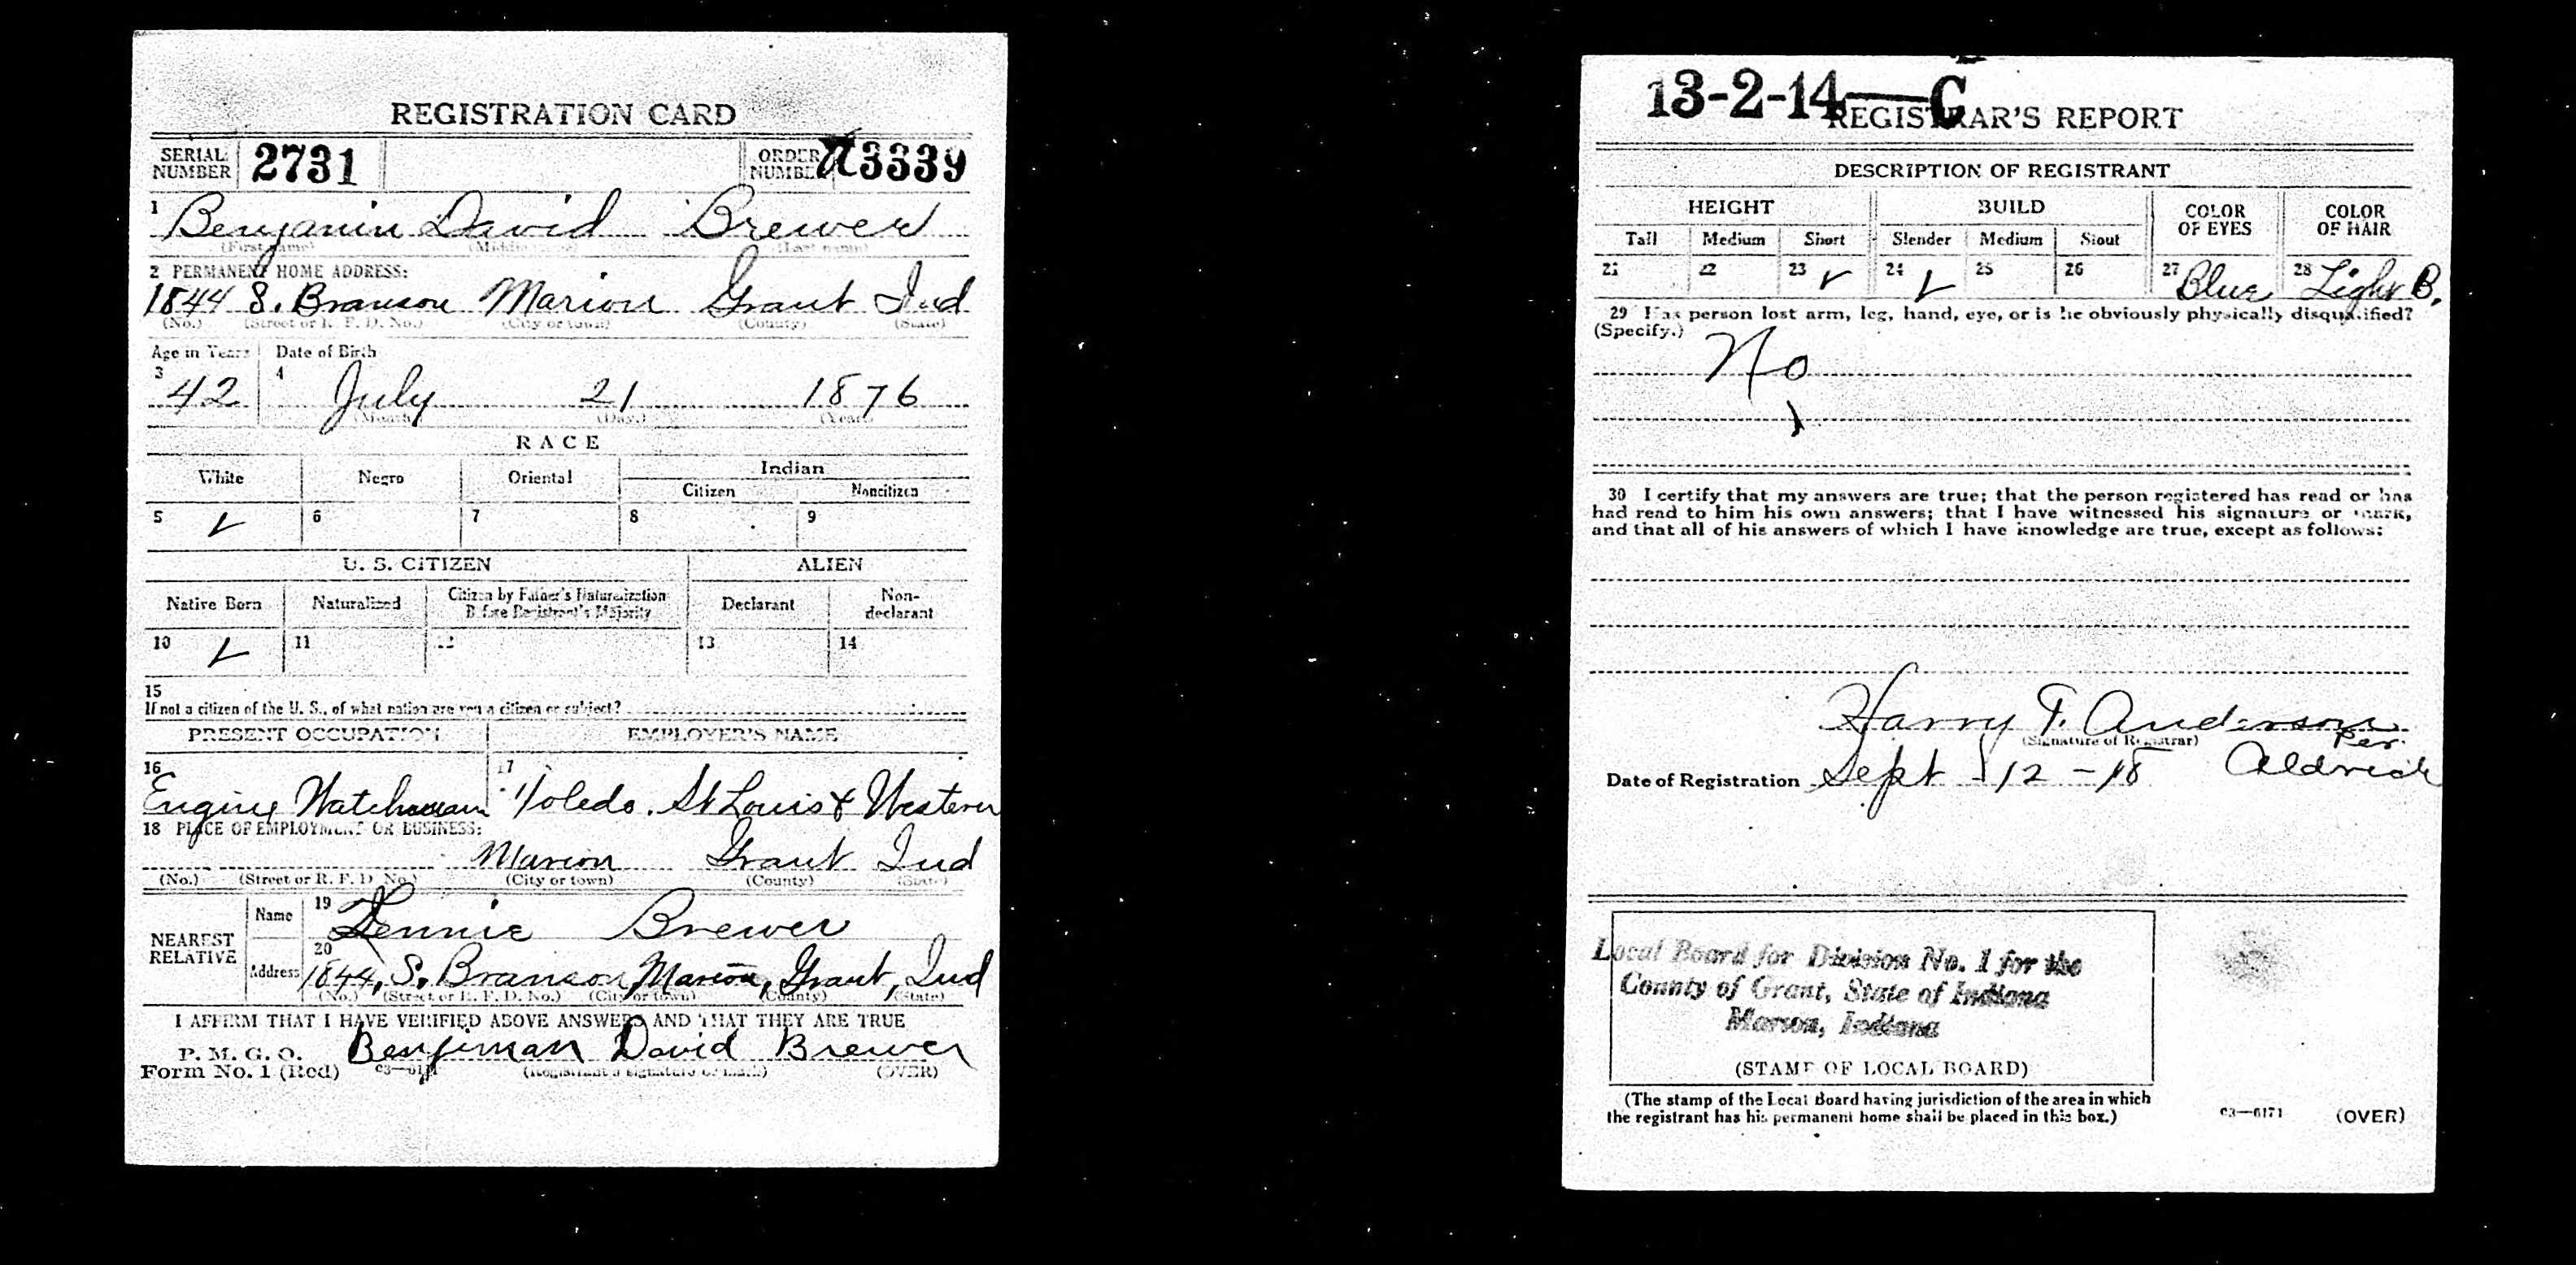 REGISTRATION CARD
SERIAL NUMBER 2731 ORDER NUMBER A3339
1 Benjamin David Brewer
(First name) (Middle name) (Last name)
2 PERMANENT HOME ADDRESS:
1844 S. Branson Marion Grant Ind
(No.) (Street or R. F. D. No.) (City or town) (County) (State)
Age in Years Date of Birth
3 42 4 July 21 1876
(Month) (Day.) (Year)
RACE
White Negro Oriental Indian
Citizen Noncitizen
5 ✓ 6 7 8 9
U. S. CITIZEN ALIEN
Native Born Naturalized Citizen by Father's Naturalization Before Registrant's Majority Declarant Non-declarant
10 ✓ 11 12 13 14
15
If not a citizen of the U. S., of what nation are you a citizen or subject?
PRESENT OCCUPATION EMPLOYER'S NAME
16 17
Engine Watchman Toledo. St Louis & Western
18 PLACE OF EMPLOYMENT OR BUSINESS:
Marion Grant Ind
(No.) (Street or R. F. D. No.) (City or town) (County) (State)
NEAREST RELATIVE Name 19 Brewer
Address 20 1844, S. Branson, Marion, Grant, Ind
(No.) (Street or R. F. D. No.) (City or town) (County) (State)
I AFFIRM THAT I HAVE VERIFIED ABOVE ANSWERS AND THAT THEY ARE TRUE
P. M. G. O. Benjiman David Brewer
Form No. 1 (Red) 03—6171 (Registrant's signature or mark) (OVER)
13-2-14—C
REGISTRAR'S REPORT
DESCRIPTION OF REGISTRANT
HEIGHT BUILD COLOR OF EYES COLOR OF HAIR
Tall Medium Short Slender Medium Stout
21 22 23 ✓ 24 ✓ 25 26 27 Blue 28 Light B.
29 Has person lost arm, leg, hand, eye, or is he obviously physically disqualified?
(Specify.)
No
30 I certify that my answers are true; that the person registered has read or has
had read to him his own answers; that I have witnessed his signature or mark,
and that all of his answers of which I have knowledge are true, except as follows:
Harry T. Anderson
(Signature of Registrar) Per.
Date of Registration Sept 12 - 18 Aldrich
Local Board for Division No. 1 for the
County of Grant, State of Indiana
Marion, Indiana
(STAMP OF LOCAL BOARD)
(The stamp of the Local Board having jurisdiction of the area in which
the registrant has his permanent home shall be placed in this box.)
03—6171 (OVER)